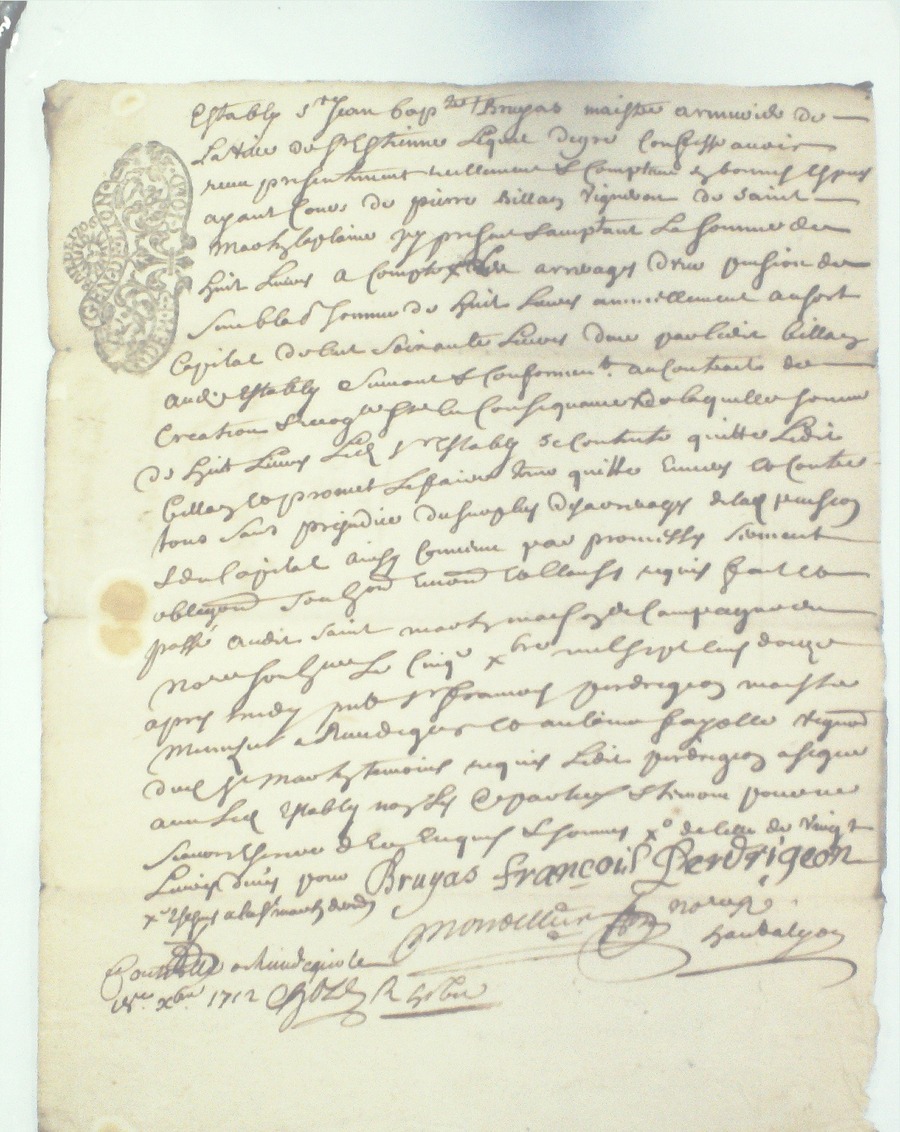 GEN. DE LYON
Estably Sr Jean bapte Bruyas maistre armurié de
La Ville de St Estienne Lequel degre Confesse avoir
receu presentement reellement & Comptant en bonnes Espeses
ayant Cours de pierre billaz Vigneron de Saint
Martin laplaine Icy present Lacceptant La somme de
huit Livres a Compte des arrerages dune pension de
Semblable somme de huit Livres annuellement au sort
Capital de Cent Soixante Livres deue par ledit billaz
audit Estably Suivant & Conformemt. au Contrat de
Creation de laquelle somme
de huit Livres Led Sr Estably Se Contente quitte Ledit
billaz & promet Le faire tenir quitte Envers & Contre
tous Sans prejudice du surplus des arrerages de lad pension
& du Capital ainsy Convenu par promesses Serment
obligaon requis fait &
passé audit Saint Martin maison de Campagne du
Nore soubzne Le Cinqe xbre mil sept Cens douze
apres midy pnt Sr francois perdrigeon maistre
a Rivedegier & anthoine fayolle vigneron
dud St Martin temoins requis Ledit perdrigeon a signé
avec Led Estably non Les parties & temoin pour ne
Scavoir de Ce Enquis & Sommes de Celle de Vingt
Livres pour Bruyas françois Perdrigeon
a la St Martin
Nore Rl
Controllé a Rivedegier le
xbre 1712